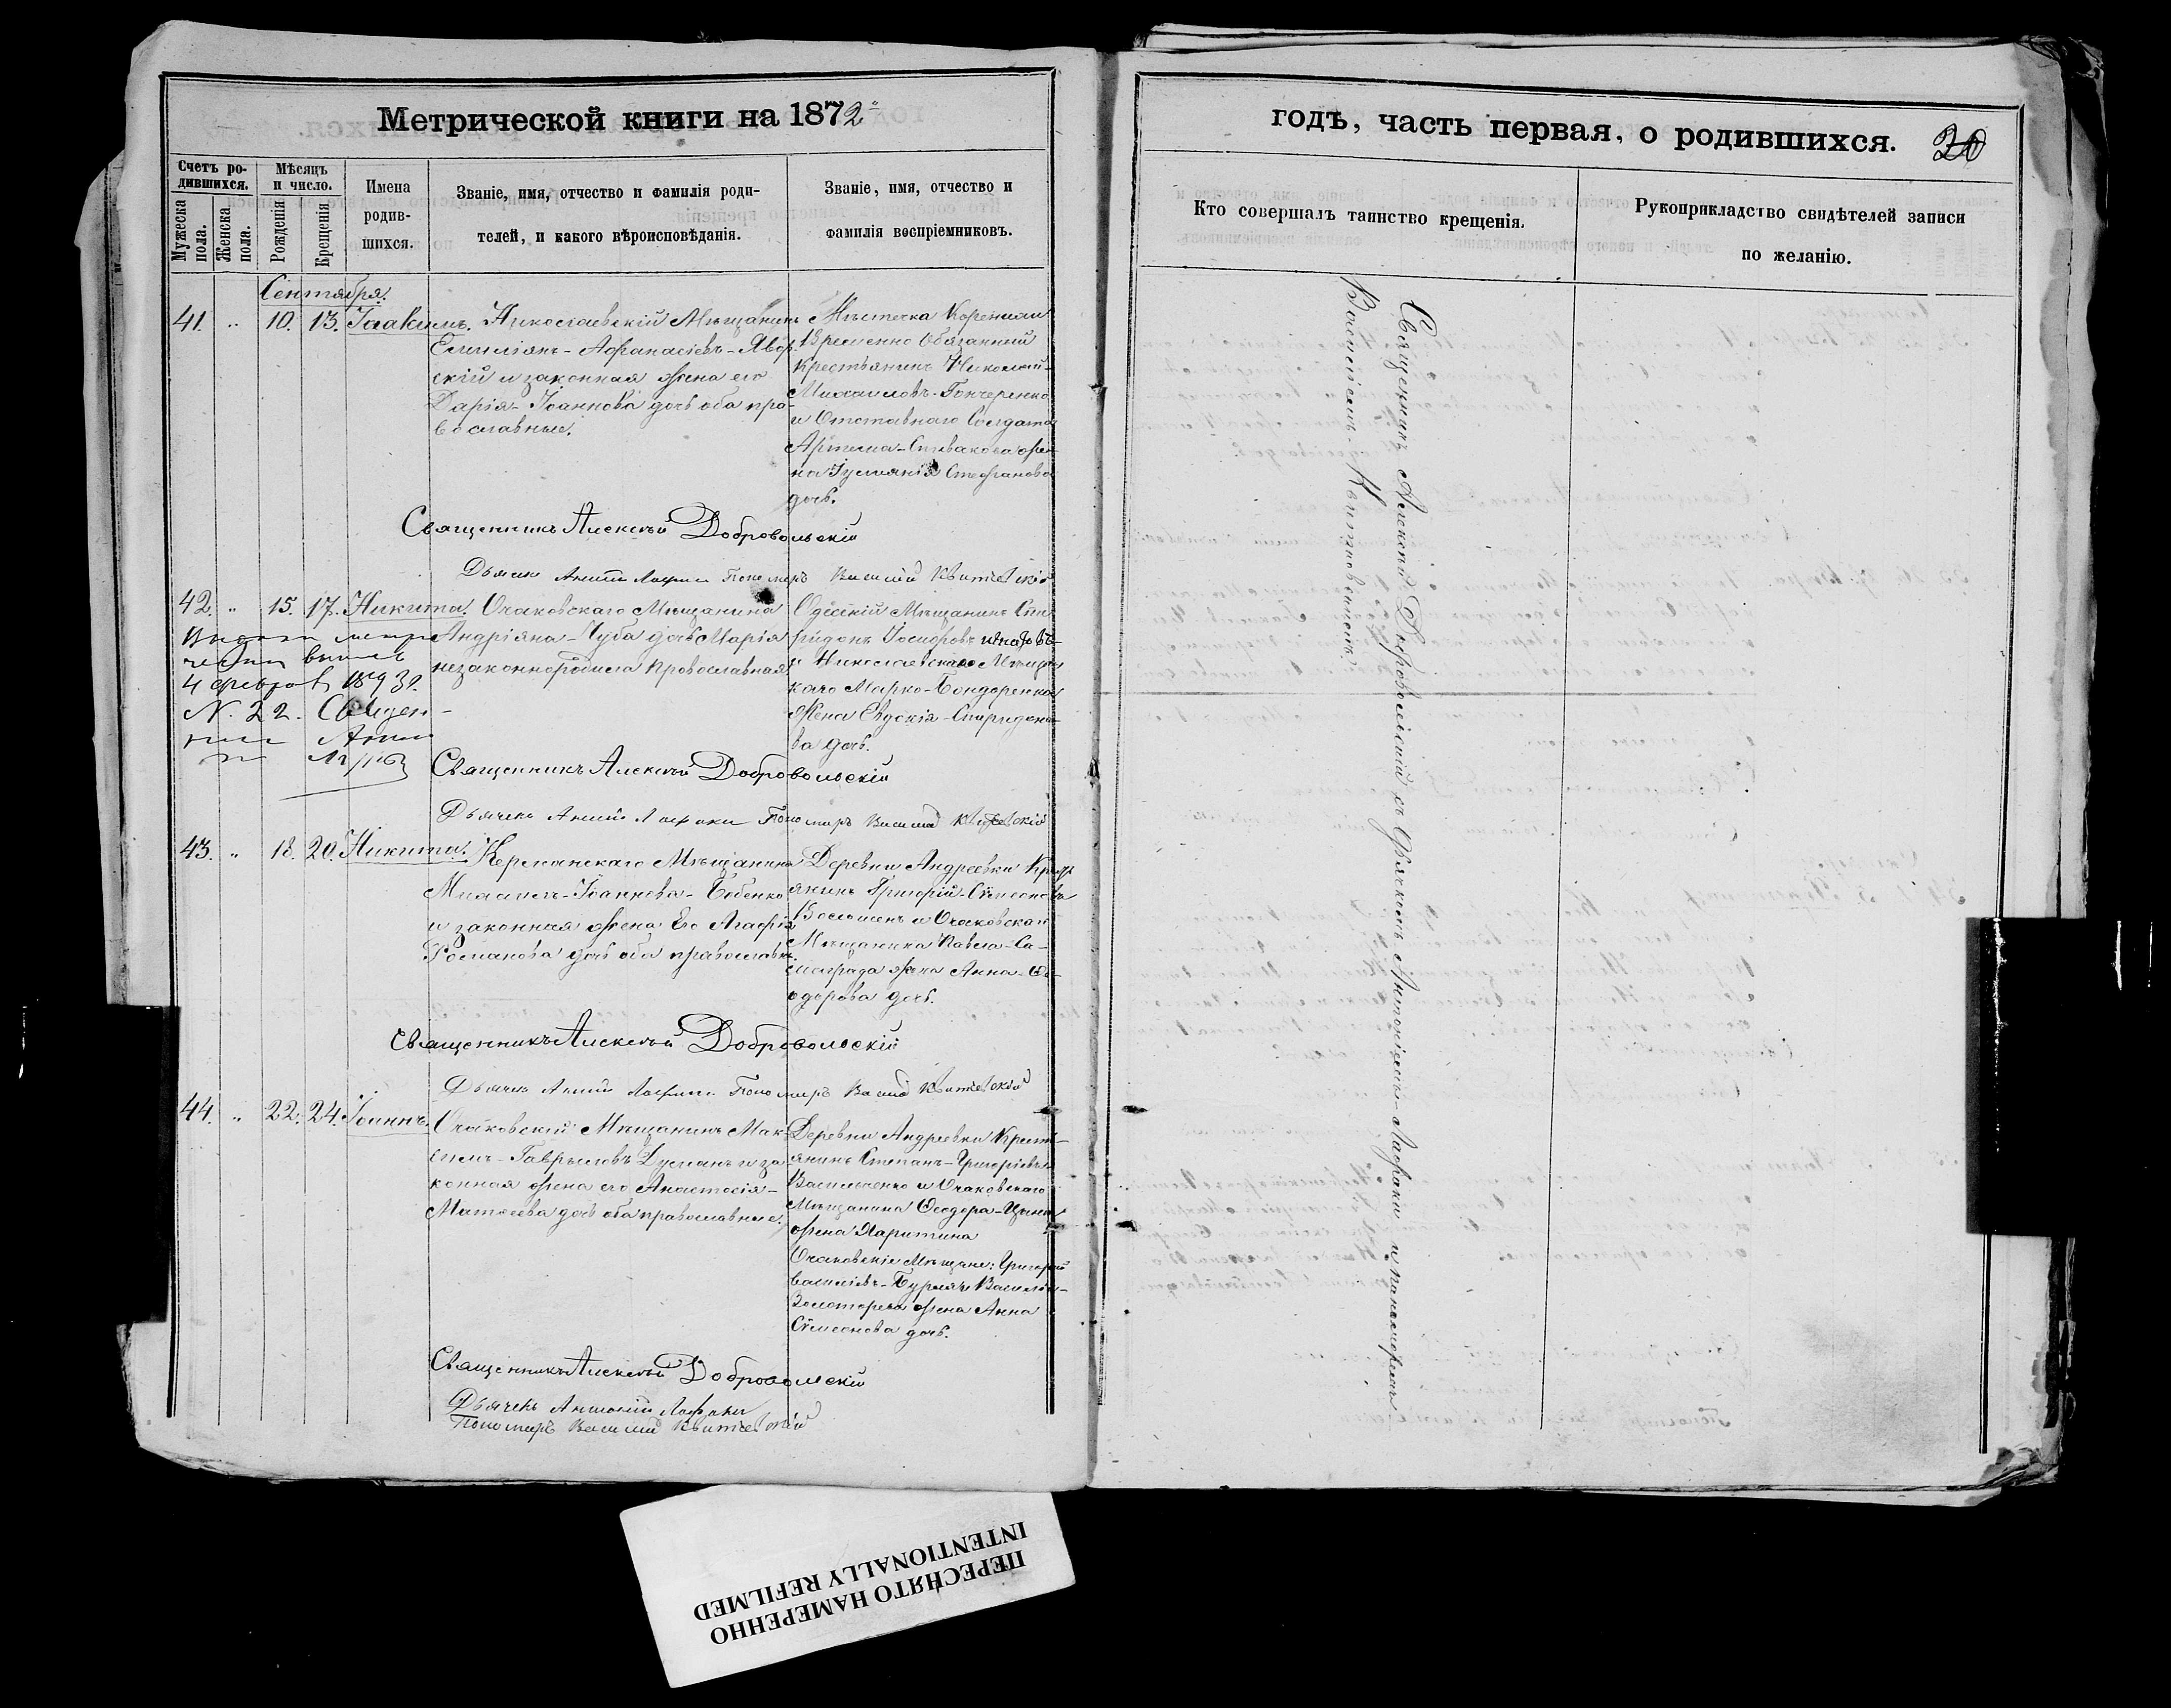 Метрической книги на 1872
Счетъ ро-
дившихся.
Мѣсяцъ
и число.
Мужеска
пола.
Женска
пола.
Рожденія
Крещенія.
Имена
родив-
шихся.
Званіе, имя, отчество и фамилія роди-
телей, и какого вѣроисповѣданія.
Званіе, имя, отчество и
фамилія воспріемниковъ.
Сентября.
41. „ 10. 13. Іоакимъ.
Николаевскій Мѣщанинъ
Емиліянъ-Афанасіевъ-Явор-
скій и законная жена его
Дарія-Іоаннова дочь оба пра-
вославные.
Мѣстечка
Временно Обязанный
Крестьянинъ Николай-
Михаиловъ-Гончеренко
и Отставнаго Солдата
Артема-Спивакова же-
на Іуліянія Стефанова
дочь.
Священникъ Алексѣй Добровольскій
Дьячек Пономарь Василій
42. „ 15. 17. Никита.
Очаковскаго Мѣщанина
Андріяна-Чуба дочь Марія
незаконнородила Православная
Одесскій Мѣщанинъ Спи-
ридонъ Іосифовъ
и Николаевскаго Мѣщан
каго Марко-Бондоренка
жена Евдокія-Спиридоно-
ва дочь.
4 1893 г.
N. 22. Священ-
Священникъ Алексѣй Добровольскій
Дьячекъ Пономарь Василій
43. „ 18. 20. Никита.
Мѣщанина
Михаилъ-Іоаннова-Бабенко
и законная жена Его Агафія
Романова дочь оба православн.
Деревни Андреевки Крест
янинъ Григорій-Сѵмеоновъ
Волошенъ и Очаковскаго
Мѣщанина Павла-Са-
мограда жена Анна-Ѳе-
одорова дочь.
Священникъ Алексѣй Добровольскій
Дьячек Пономарь
44. „ 22. 24. Іоаннъ.
Очаковскій Мѣщанинъ Мак-
симъ-Гавриловъ и за-
конная жена его Анастасія-
Матѳеева дочь оба православные.
Деревни Андреевки Крест-
янинъ Степанъ-Григоріевъ
Васильченко и Очаковскаго
Мѣщанина Ѳеодора
жена Харитина
Очаковскіе Мѣщане: Григорій
Василіевъ-Бурлак
жена Анна
Сѵмеонова дочь.
Священникъ Алексѣй Добровольскій
Дьячекъ Антоній
Пономарь Василій
годѣ, часть первая, о родившихся.
20
Кто совершалъ таинство крещенія.
Рукоприкладство свидѣтелей записи
по желанію.
Священникъ Алексѣй Добровольскій съ Дьячкомъ Антоніемъ и панамаремъ
Василіемъ
ПЕРЕСНЯТО НАМЕРЕННО
INTENTIONALLY REFILMED